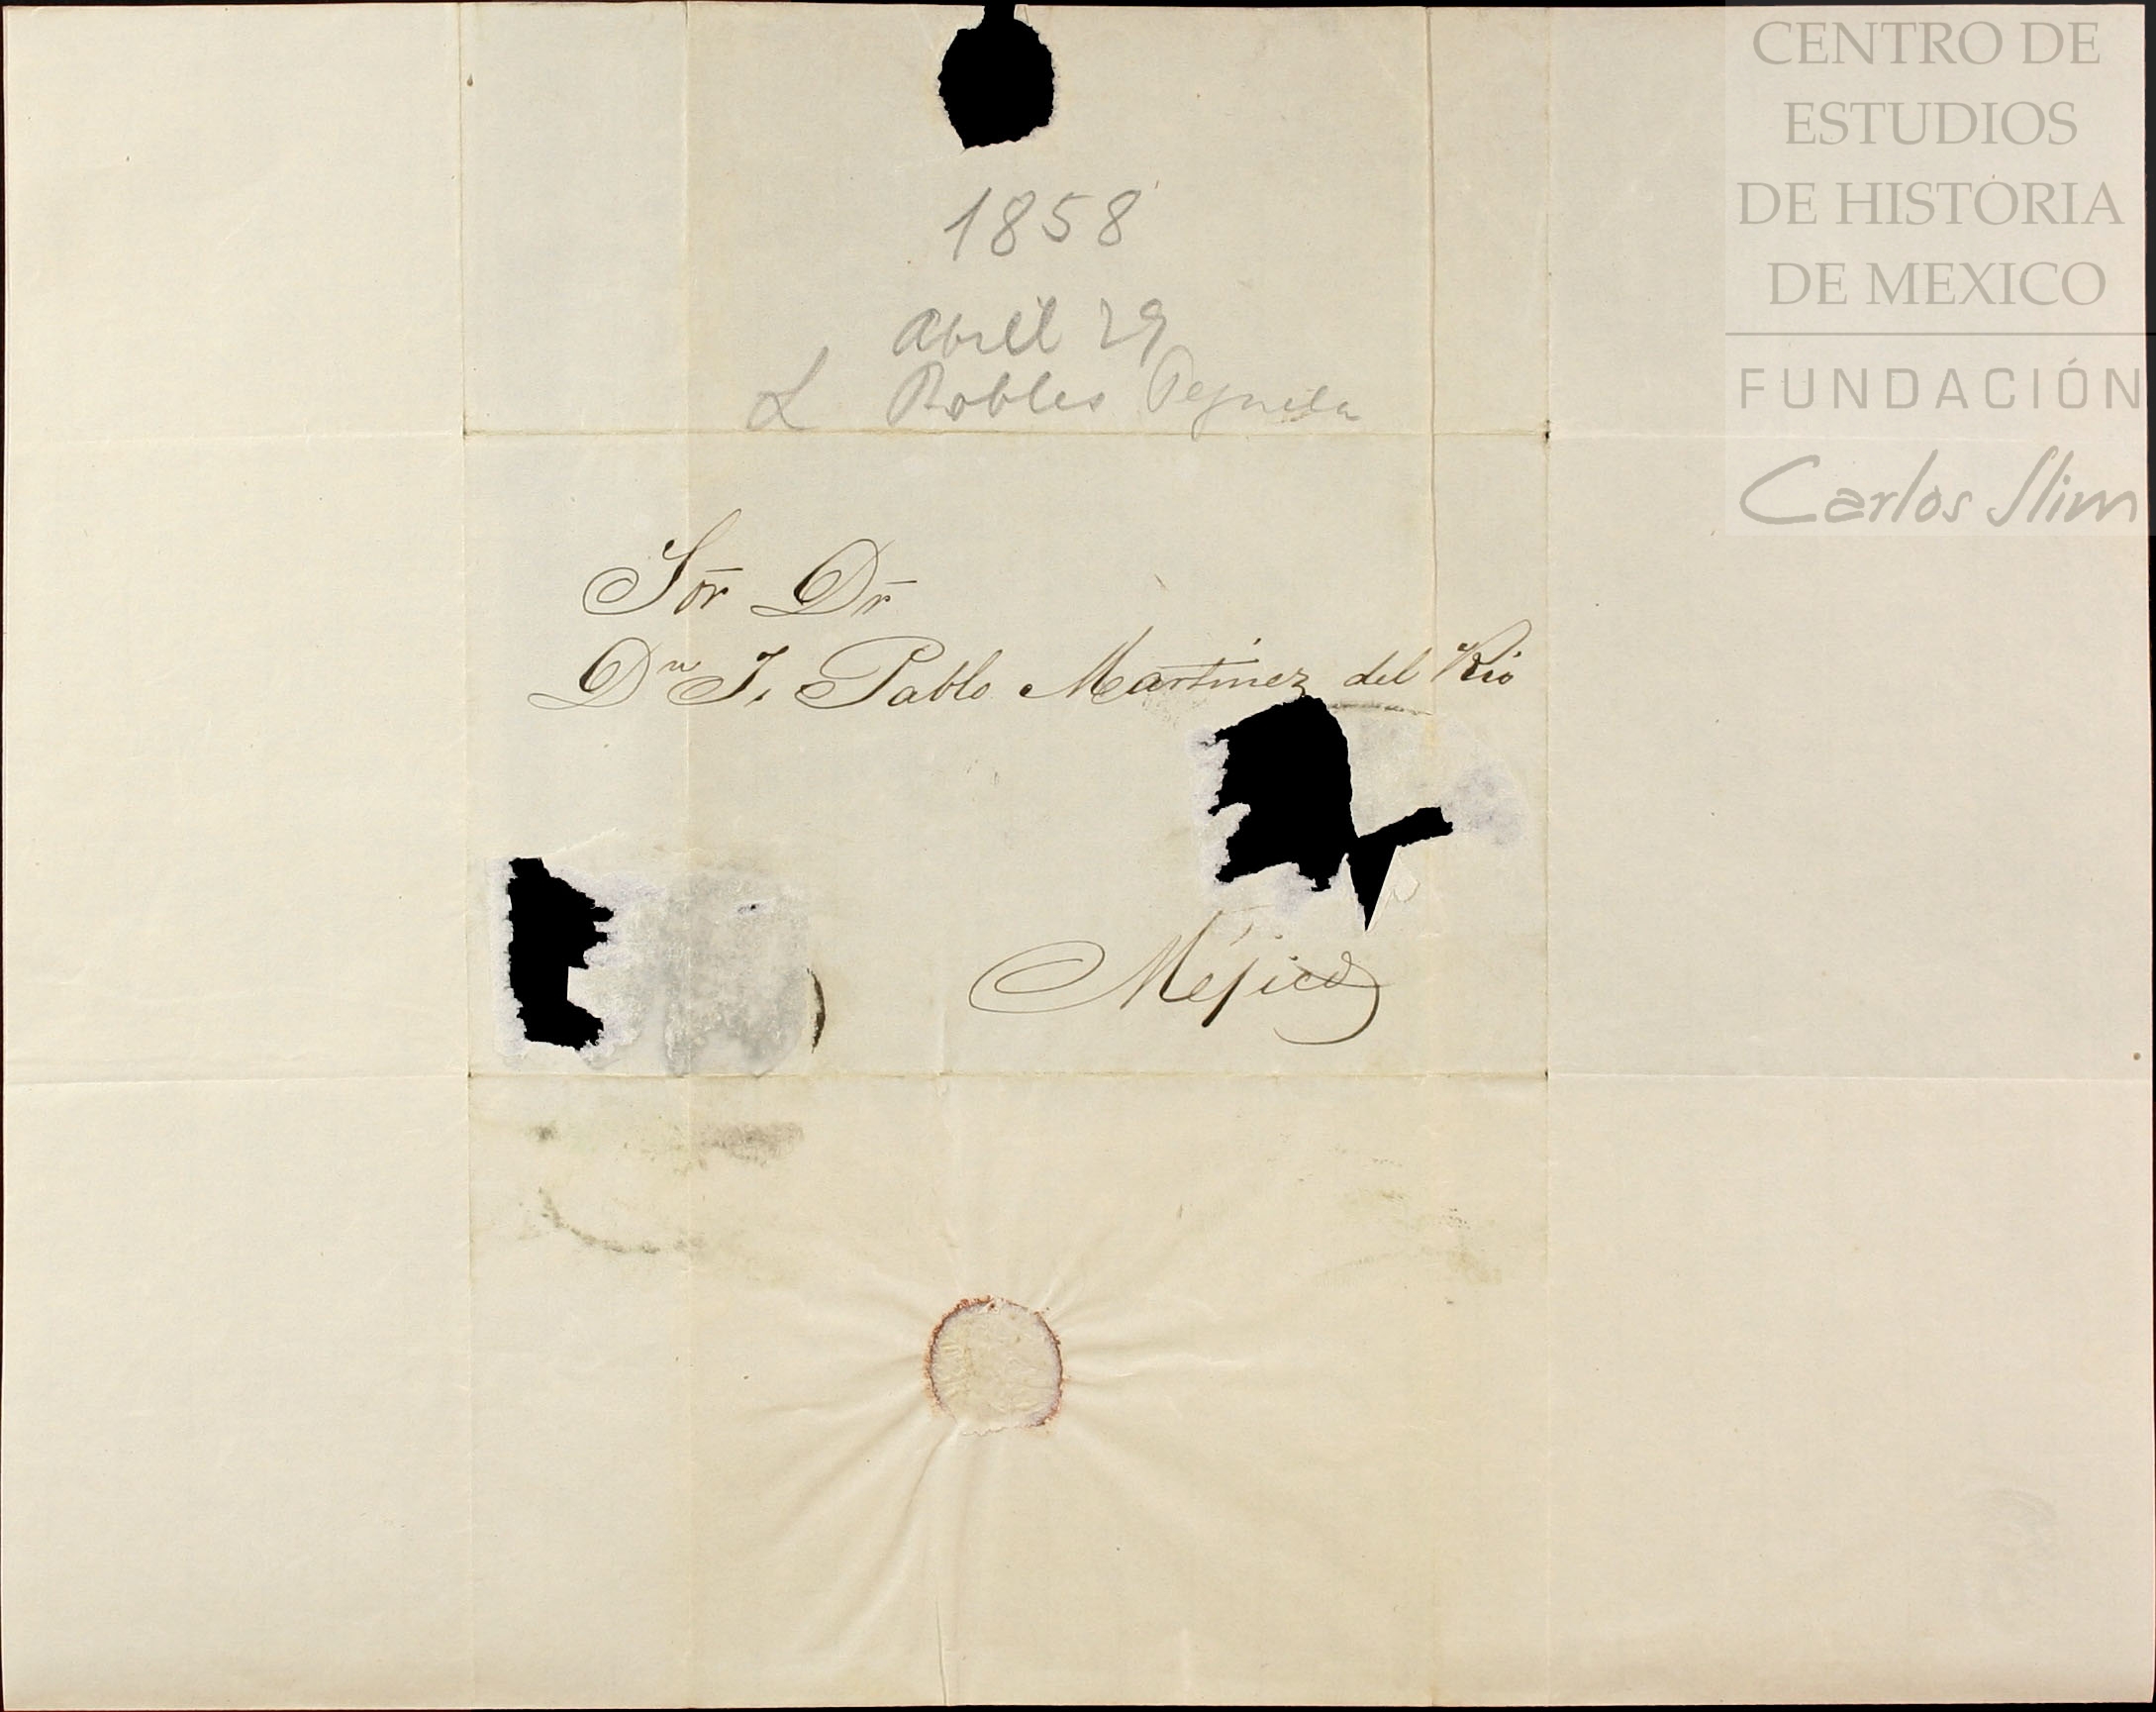 1858
Abril 29
L Robles Pezuela
Sōr Dr̄
Dn J. Pablo Martínez del Rio
Méjico
CENTRO DE
ESTUDIOS
DE HISTORIA
DE MEXICO
FUNDACIÓN
Carlos Slim